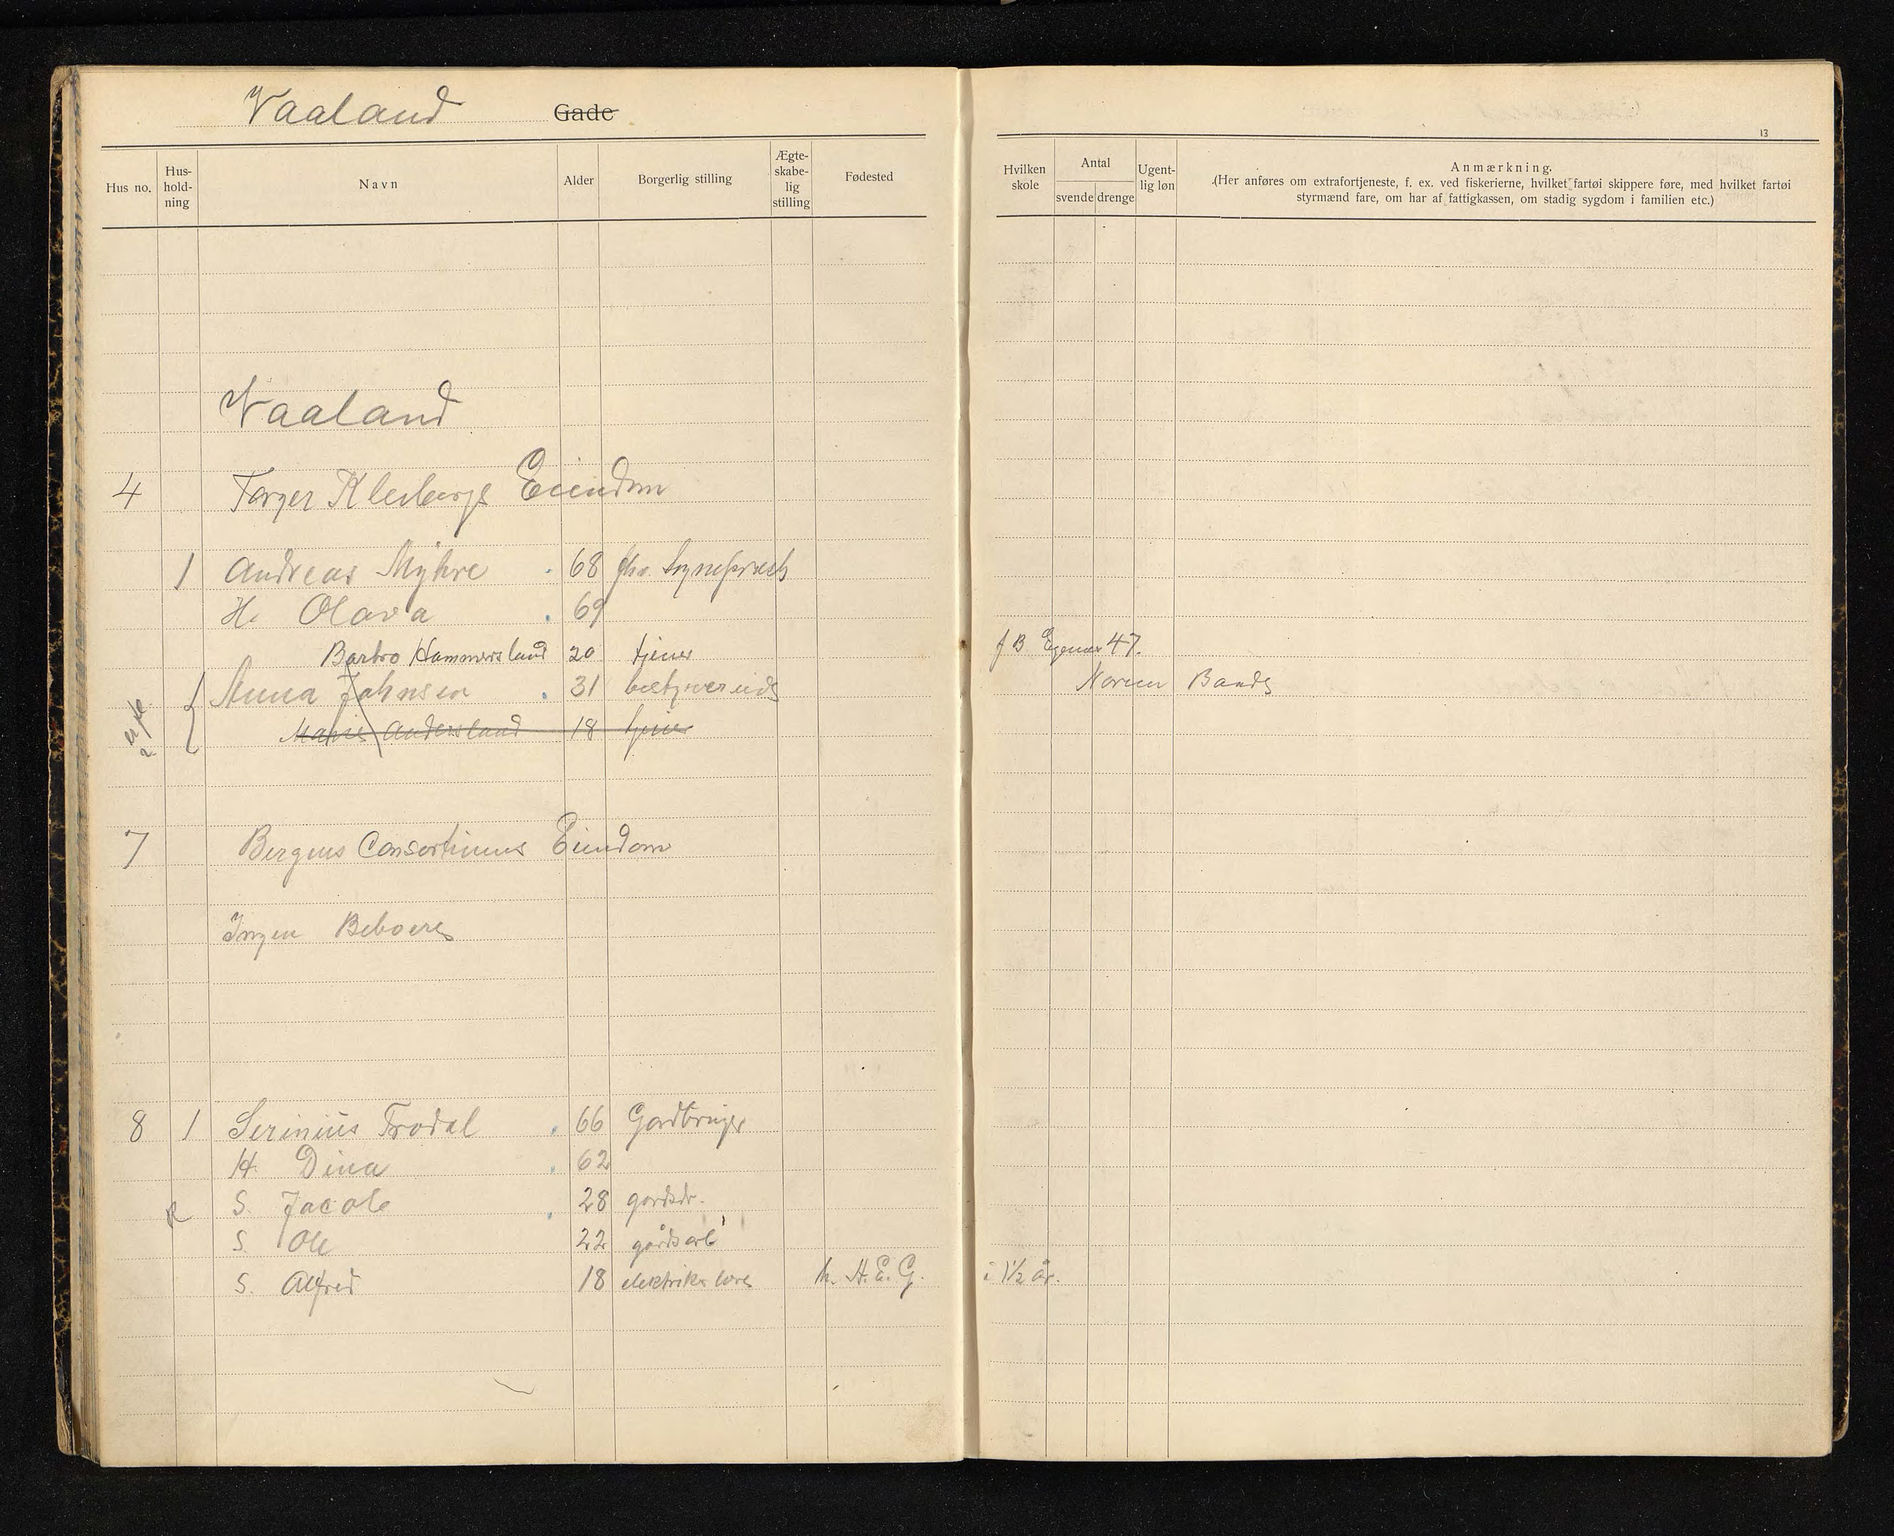 Vaaland Gade
13
Hus no. Hus-hold-ning Navn Alder Borgerlig stilling Ægte-skabe-lig stilling Fødested Hvilken skole Antal svende drenge Ugent-lig løn Anmærkning.
(Her anføres om extrafortjeneste, f. ex. ved fiskerierne, hvilket fartøi skippere føre, med hvilket fartøi
styrmænd fare, om har af fattigkassen, om stadig sygdom i familien etc.)
Vaaland
4 Eiendom
1 Andreas Myhre 68
H. Olava 69
Barbro Hammersland 20 tjener f B 47.
Anna Johnsen 31
Marie Andersland 18 tjener
7 Bergens Consortiums Eiendom
Ingen Beboere
8 1 Serinius Trodal 66 Gardbruger
H. Dina 62
S. Jacob 28 gardsdr.
S. Ole 22 gårdsarb
S. Alfred 18 elektriker h. H. E. G. i 1½ år.